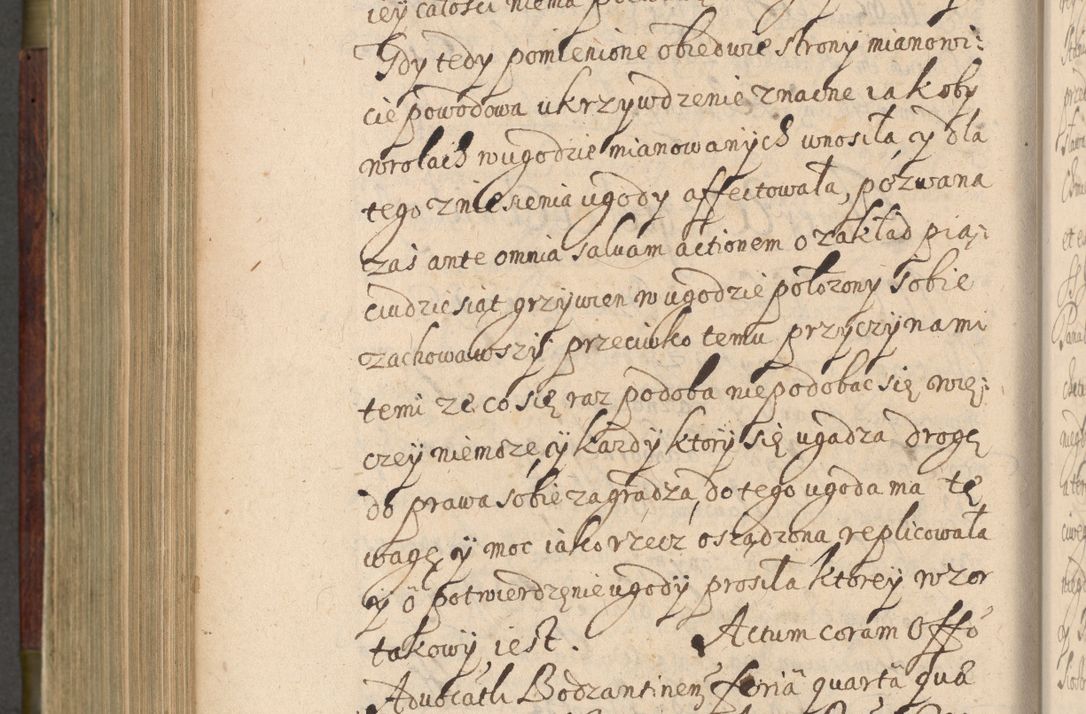 iey całosci niema
Gdy tedy pomienione obiedwie strony mianowi:
cie powodowa ukrzywdzenie znacne iakoby
wrolach wugodzie mianowanych wnosiła cy dla
tego zniesienia ugody affectowała, pozwana
zas ante omnia salvam actionem o zakład pią:
ciudziesiąt grzywien w ugodzie położony sobie
zachowawszy przeciwko temu przyczynami
temi ze co się raz podoba niepodobac się wię:
czey niemoze cy kazdy ktory się ugadza drogę
do prawa sobie zagradza do tego ugoda ma tę
wagę y moc iako rzecz osządzona replicowała
y o potwierdzęnie ugody prosiła ktorey wzor
takowy iest. Actum coram Offo
Advocatli Bodzantinen feria quarta qua